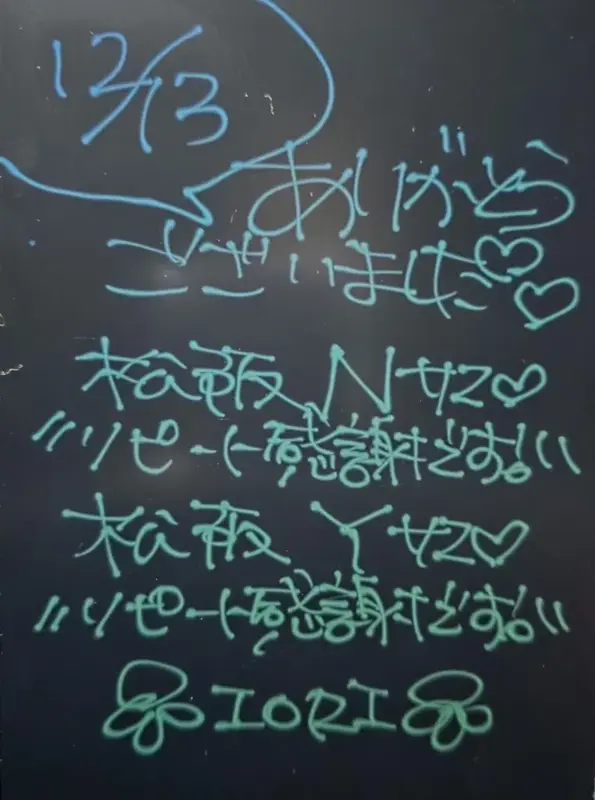 12/13
ありがとう
ございました♡♡
松阪 Nサマ♡
〃リピート感謝です。〃
松阪 Yサマ♡
〃リピート感謝です。〃
IORI